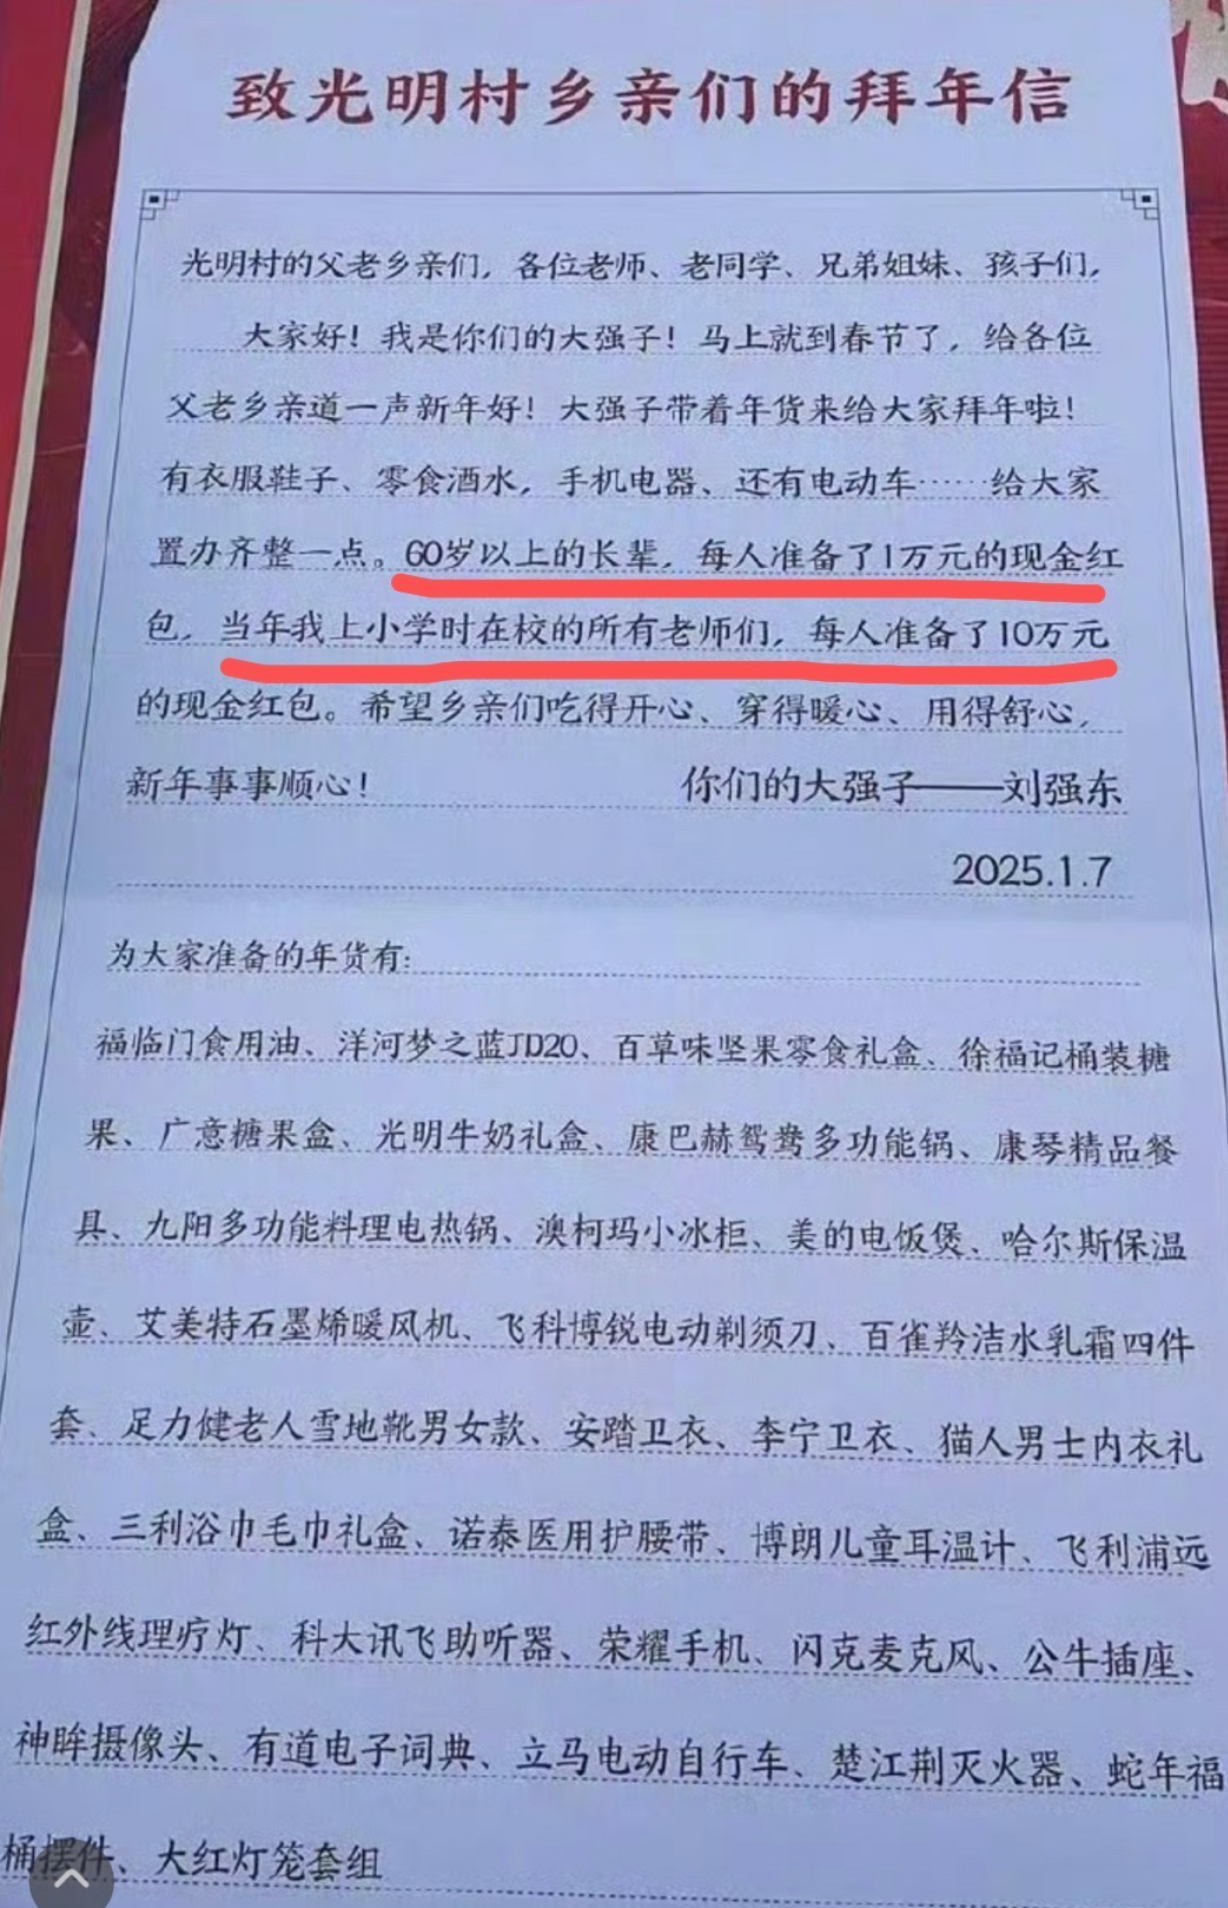 致光明村乡亲们的拜年信
光明村的父老乡亲们，各位老师、老同学、兄弟姐妹、孩子们，
大家好！我是你们的大强子！马上就到春节了，给各位
父老乡亲道一声新年好！大强子带着年货来给大家拜年啦！
有衣服鞋子、零食酒水，手机电器、还有电动车……给大家
置办齐整一点。60岁以上的长辈，每人准备了1万元的现金红
包，当年我上小学时在校的所有老师们，每人准备了10万元
的现金红包。希望乡亲们吃得开心、穿得暖心、用得舒心，
新年事事顺心！ 你们的大强子——刘强东
2025.1.7
为大家准备的年货有：
福临门食用油、洋河梦之蓝JD20、百草味坚果零食礼盒、徐福记桶装糖
果、广意糖果盒、光明牛奶礼盒、康巴赫鸳鸯多功能锅、康琴精品餐
具、九阳多功能料理电热锅、澳柯玛小冰柜、美的电饭煲、哈尔斯保温
壶、艾美特石墨烯暖风机、飞科博锐电动剃须刀、百雀羚洁水乳霜四件
套、足力健老人雪地靴男女款、安踏卫衣、李宁卫衣、猫人男士内衣礼
盒、三利浴巾毛巾礼盒、诺泰医用护腰带、博朗儿童耳温计、飞利浦远
红外线理疗灯、科大讯飞助听器、荣耀手机、闪克麦克风、公牛插座、
神眸摄像头、有道电子词典、立马电动自行车、楚江荆灭火器、蛇年福
桶摆件、大红灯笼套组